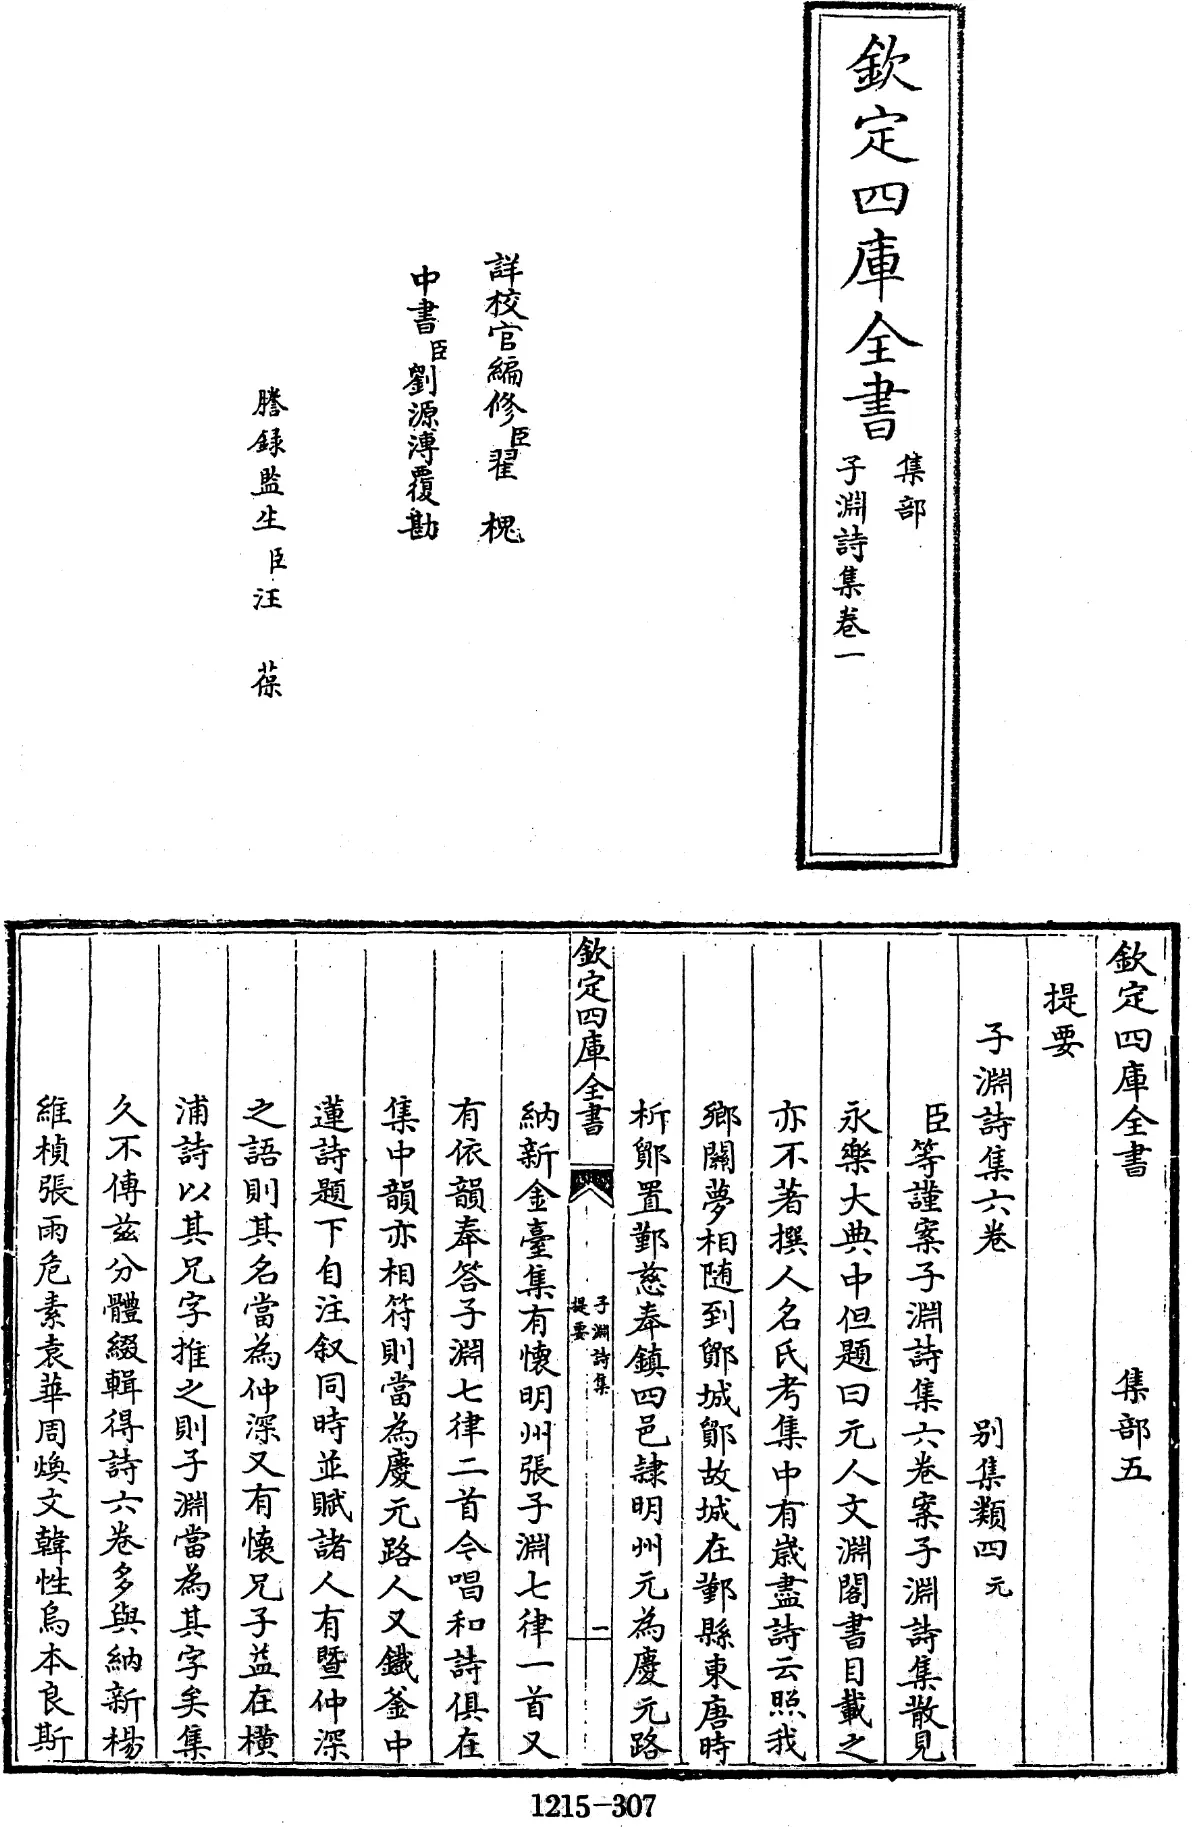 欽定四庫全書
集部
子淵詩集卷一
詳校官編修臣翟槐
中書臣劉源溥覆勘
謄錄監生臣汪葆
欽定四庫全書 集部五
提要
子淵詩集六卷 别集類四元
臣等謹案子淵詩集六卷案子淵詩集散見
永樂大典中但題曰元人文淵閣書目載之
亦不著撰人名氏考集中有歳盡詩云照我
鄉關夢相随到鄮城鄮故城在鄞縣東唐時
析鄮置鄞慈奉鎮四邑隷明州元為慶元路
欽定四庫全書
子淵詩集
提要
一
納新金臺集有懐明州張子淵七律一首又
有依韻奉答子淵七律二首今唱和詩俱在
集中韻亦相符則當為慶元路人又鐵釜中
蓮詩題下自注叙同時並賦諸人有暨仲深
之語則其名當為仲深又有懐兄子益在橫
浦詩以其兄字推之則子淵當為其字矣集
久不傳兹分體綴輯得詩六卷多與納新楊
維楨張雨危素袁華周煥文韓性烏本良斯
1215-307